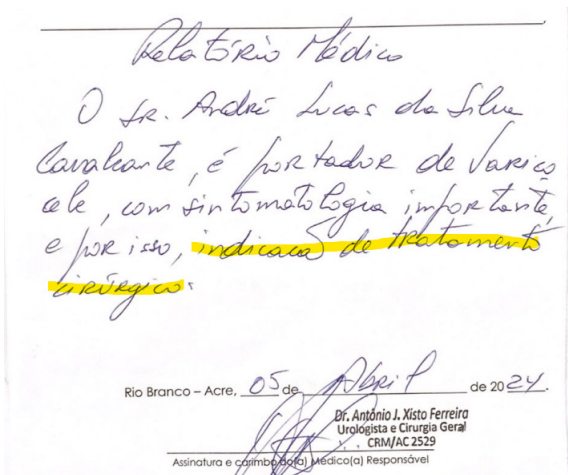 Relatório Médico
O Sr. André Lucas da Silva
Cavalcante, é portador de Varico
cele, com sintomatologia importante,
e por isso, indicação de tratamento
cirúrgico.
Rio Branco – Acre, 05 de Abril de 2024.
Dr. Antônio J. Xisto Ferreira
Urologista e Cirurgia Geral
CRM/AC 2529
Assinatura e carimbo do(a) Médico(a) Responsável